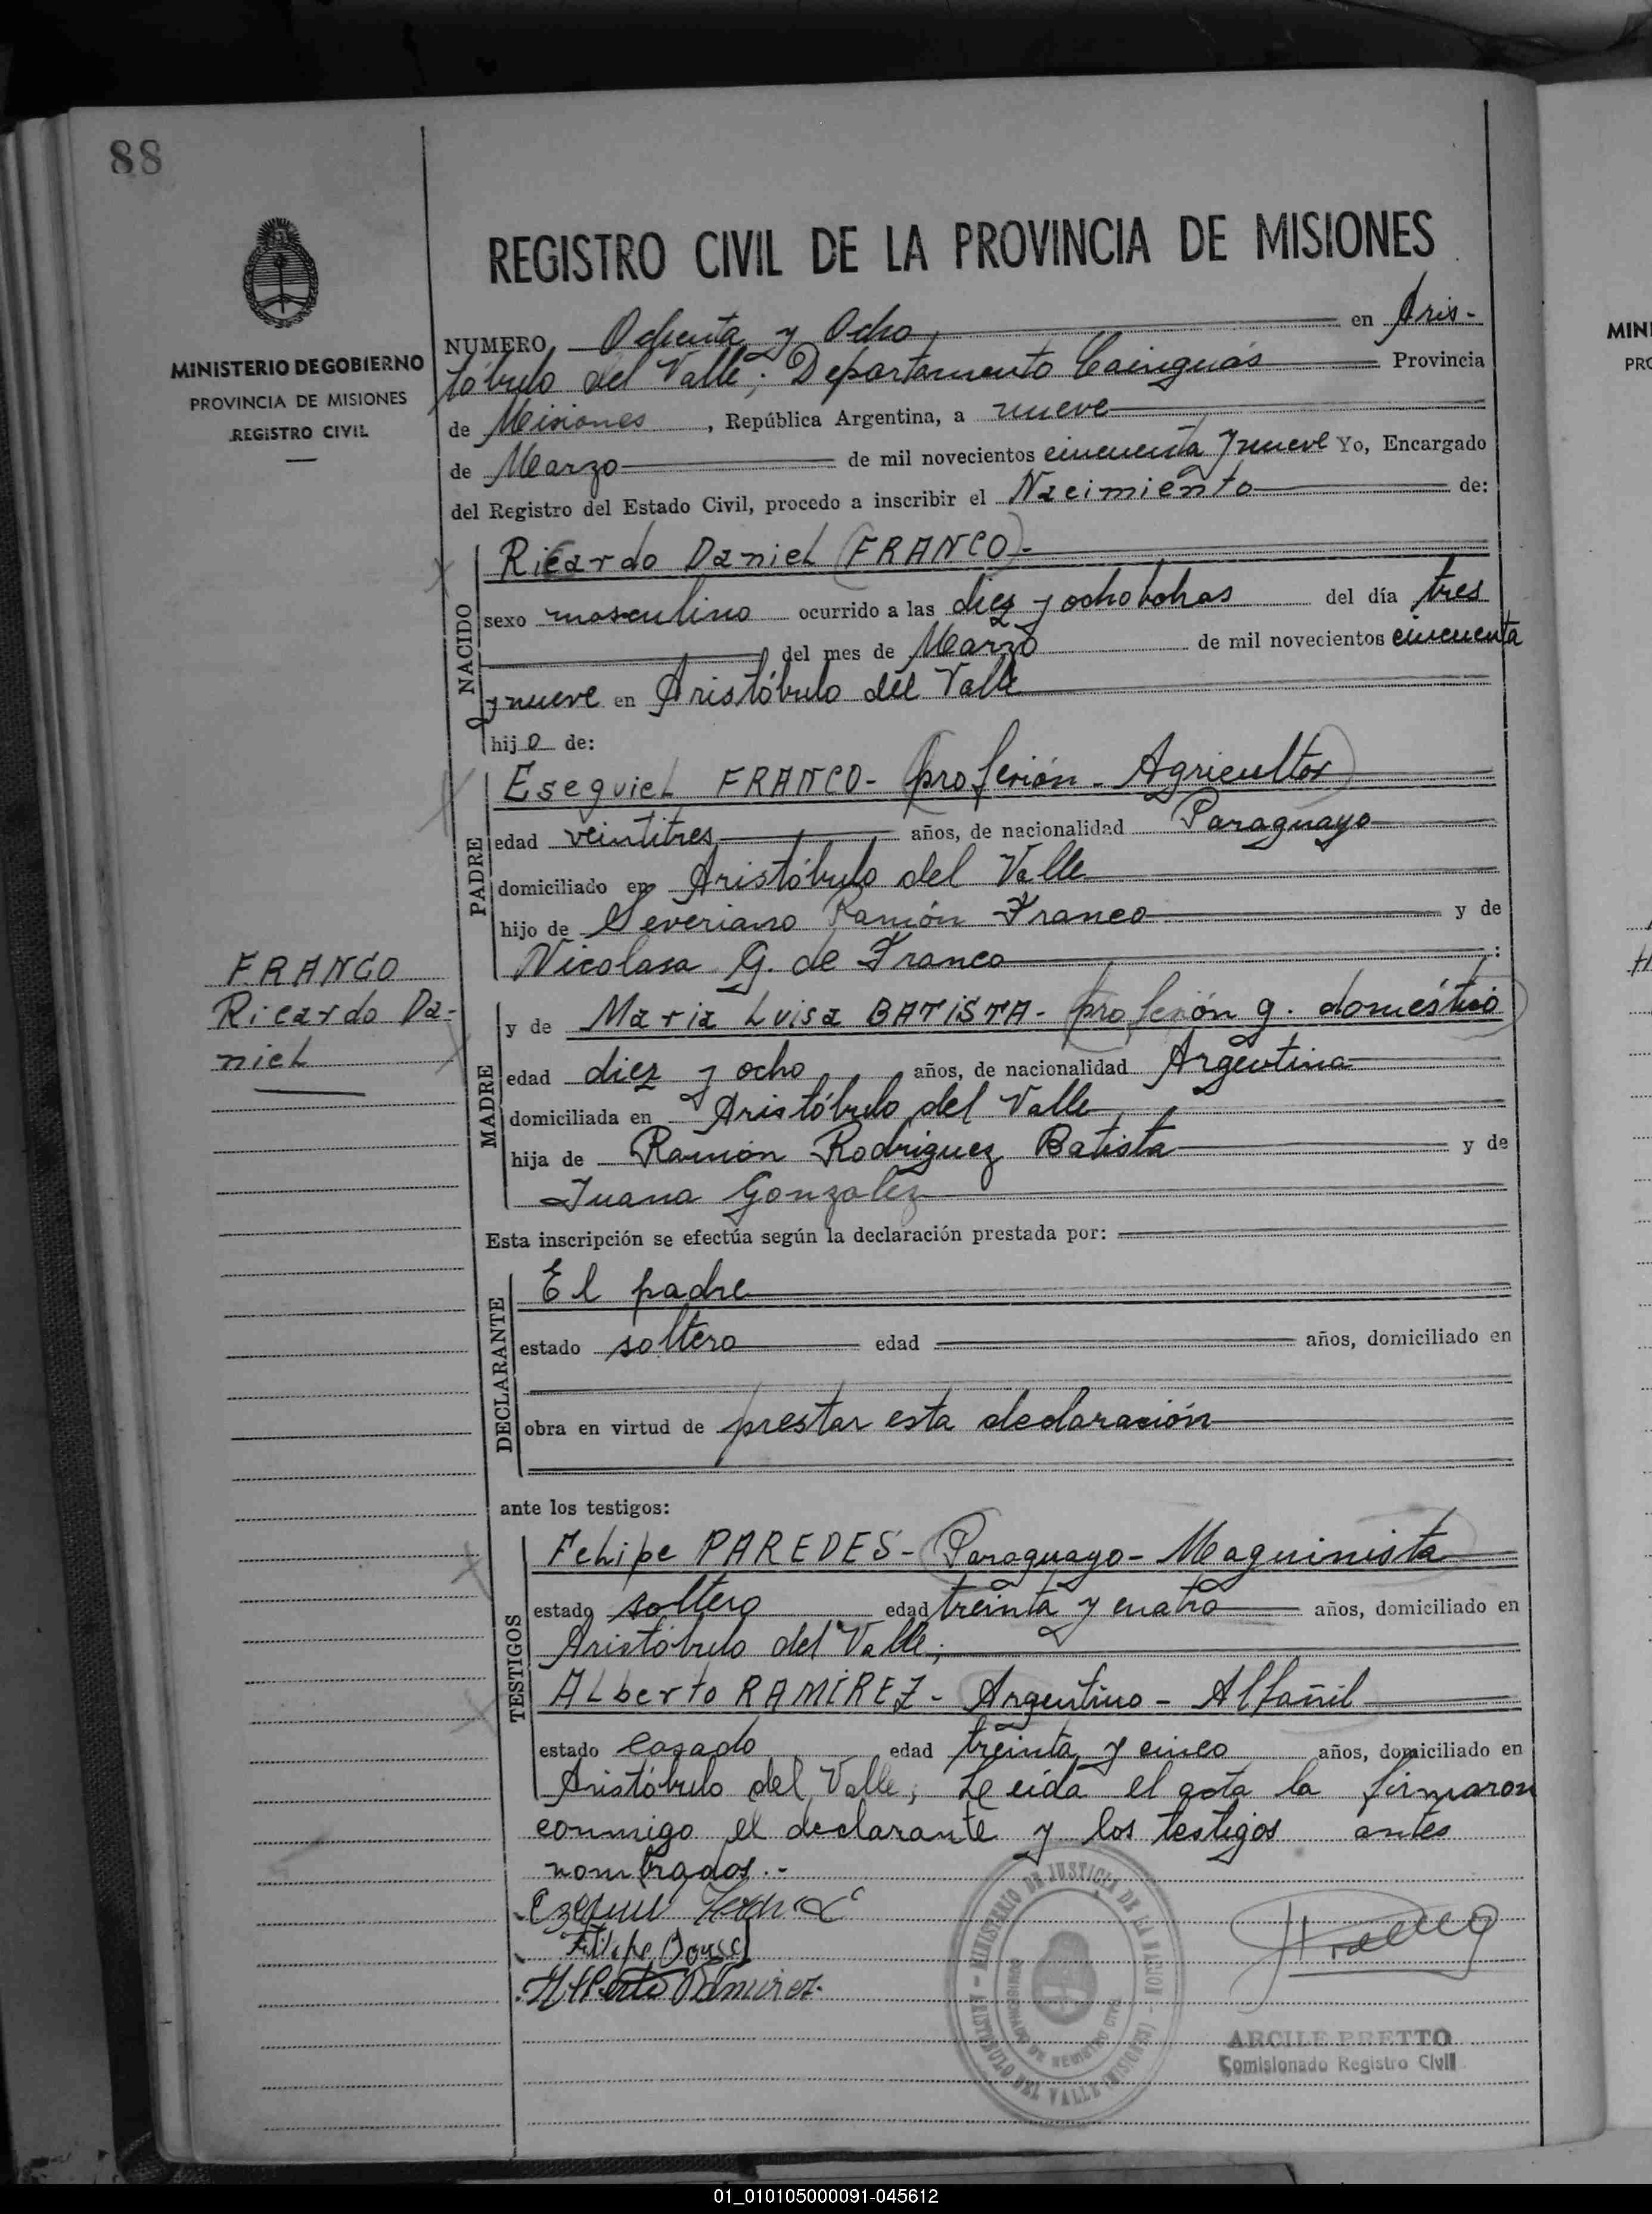 88
MINISTERIO DE GOBIERNO
PROVINCIA DE MISIONES
REGISTRO CIVIL
REGISTRO CIVIL DE LA PROVINCIA DE MISIONES
NUMERO Ochenta y Ocho, en Aris-
tóbulo del Valle; Departamento Cainguás Provincia
de Misiones, República Argentina, a nueve
de Marzo de mil novecientos cincuenta y nueve Yo, Encargado
del Registro del Estado Civil, procedo a inscribir el Nacimiento de:
NACIDO
Ricardo Daniel (FRANCO)-
sexo masculino ocurrido a las diez y ocho horas del día tres
del mes de Marzo de mil novecientos cincuenta
y nueve en Aristóbulo del Valle
hijo de:
PADRE
Esequiel FRANCO- (profesión - Agricultor)
edad veintitres años, de nacionalidad Paraguayo
domiciliado en Aristóbulo del Valle
hijo de Severiano Ramón Franco y de
Nicolasa G. de Franco :
FRANCO
Ricardo Da-
niel
MADRE
y de Maria Luisa BATISTA- (profesión q. doméstico)
edad diez y ocho años, de nacionalidad Argentina
domiciliada en Aristóbulo del Valle
hija de Ramón Rodriguez Batista y de
Juana Gonzalez
Esta inscripción se efectúa según la declaración prestada por:
DECLARANTE
El padre
estado soltero edad años, domiciliado en
obra en virtud de prestar esta declaración
ante los testigos:
TESTIGOS
Felipe PAREDES- (Paraguayo- Maquinista)
estado soltero edad treinta y cuatro años, domiciliado en
Aristóbulo del Valle;
Alberto RAMÍREZ- Argentino - Alfañil
estado casado edad treinta y cinco años, domiciliado en
Aristóbulo del Valle; Leida el acta la firmaron
conmigo el declarante y los testigos antes
nombrados.-
Alberto Ramirez.
MINISTERIO DE JUSTICIA DE LA NACION
ARISTOBULO DEL VALLE (MISIONES)
ARCILE PRETTO
Comisionado Registro Civil
MIN
PRO
01_010105000091-045612